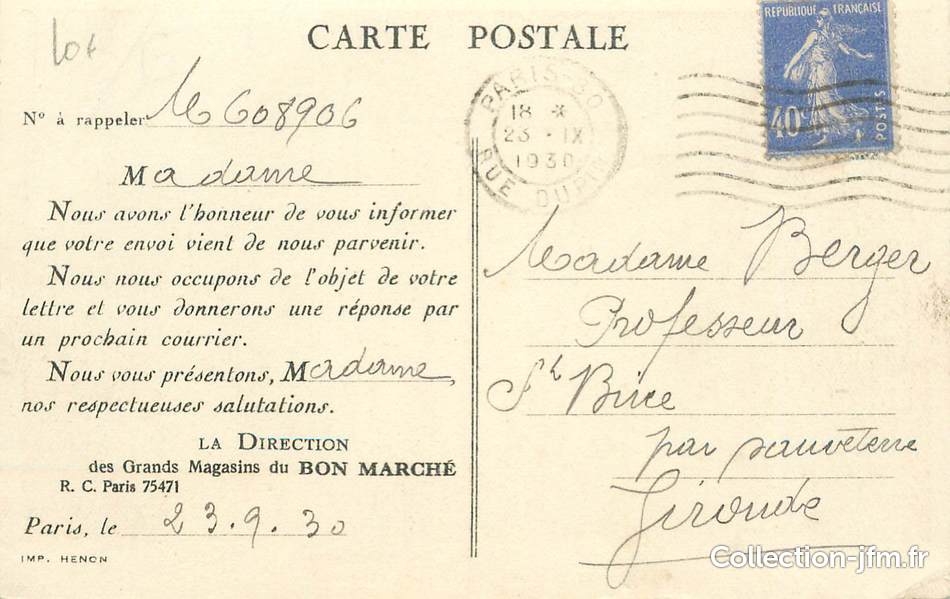 lot
CARTE POSTALE
N° à rappeler M 608906
Madame
Nous avons l'honneur de vous informer
que votre envoi vient de nous parvenir.
Nous nous occupons de l'objet de votre
lettre et vous donnerons une réponse par
un prochain courrier.
Nous vous présentons, Madame,
nos respectueuses salutations.
LA DIRECTION
des Grands Magasins du BON MARCHÉ
R. C. Paris 75471
Paris, le 23.9.30
IMP. HENON
PARIS
18 *
23 IX
1930
RUE DUPIN
RÉPUBLIQUE FRANÇAISE
40c
POSTES
Madame Berger
Professeur
St Brice
par Sauveterre
Gironde
Collection-jfm.fr